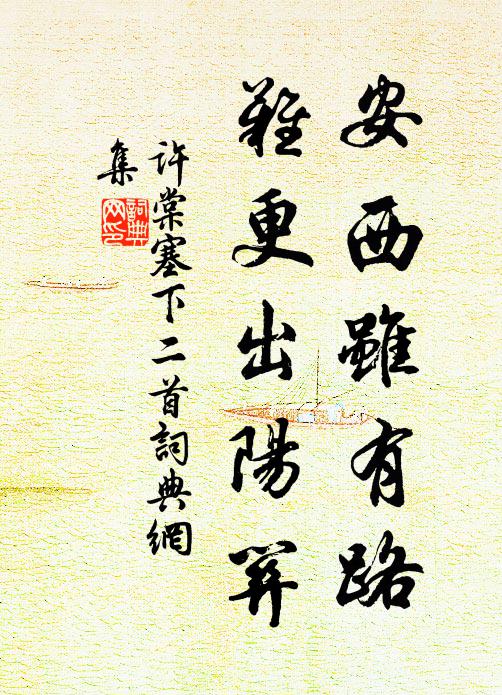 安西雖有路
難更出陽關
許棠塞下二首詞典網
集
詞典
网印